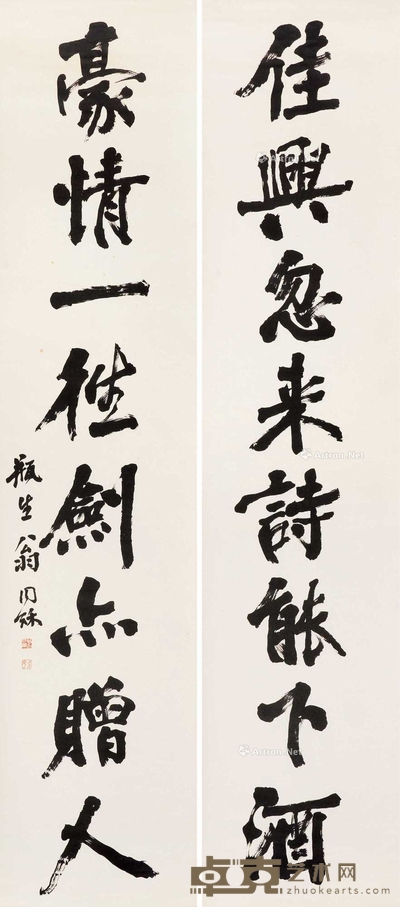 佳興忽来詩能下酒
豪情一往劍亦贈人
瓶生翁同龢
Artron.Net
Artron.Net
Artron.Net
卓克艺术网
zhuokearts.com